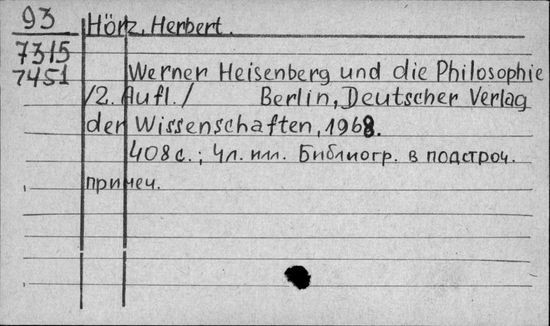 93
7315
7451
Hörz, Herbert.
Werner Heisenberg und die Philosophie
/2. Aufl./ Berlin, Deutscher Verlag
der Wissenschaften, 1968.
408 с.; 4л. илл. Библиогр. в подстроч.
примеч.